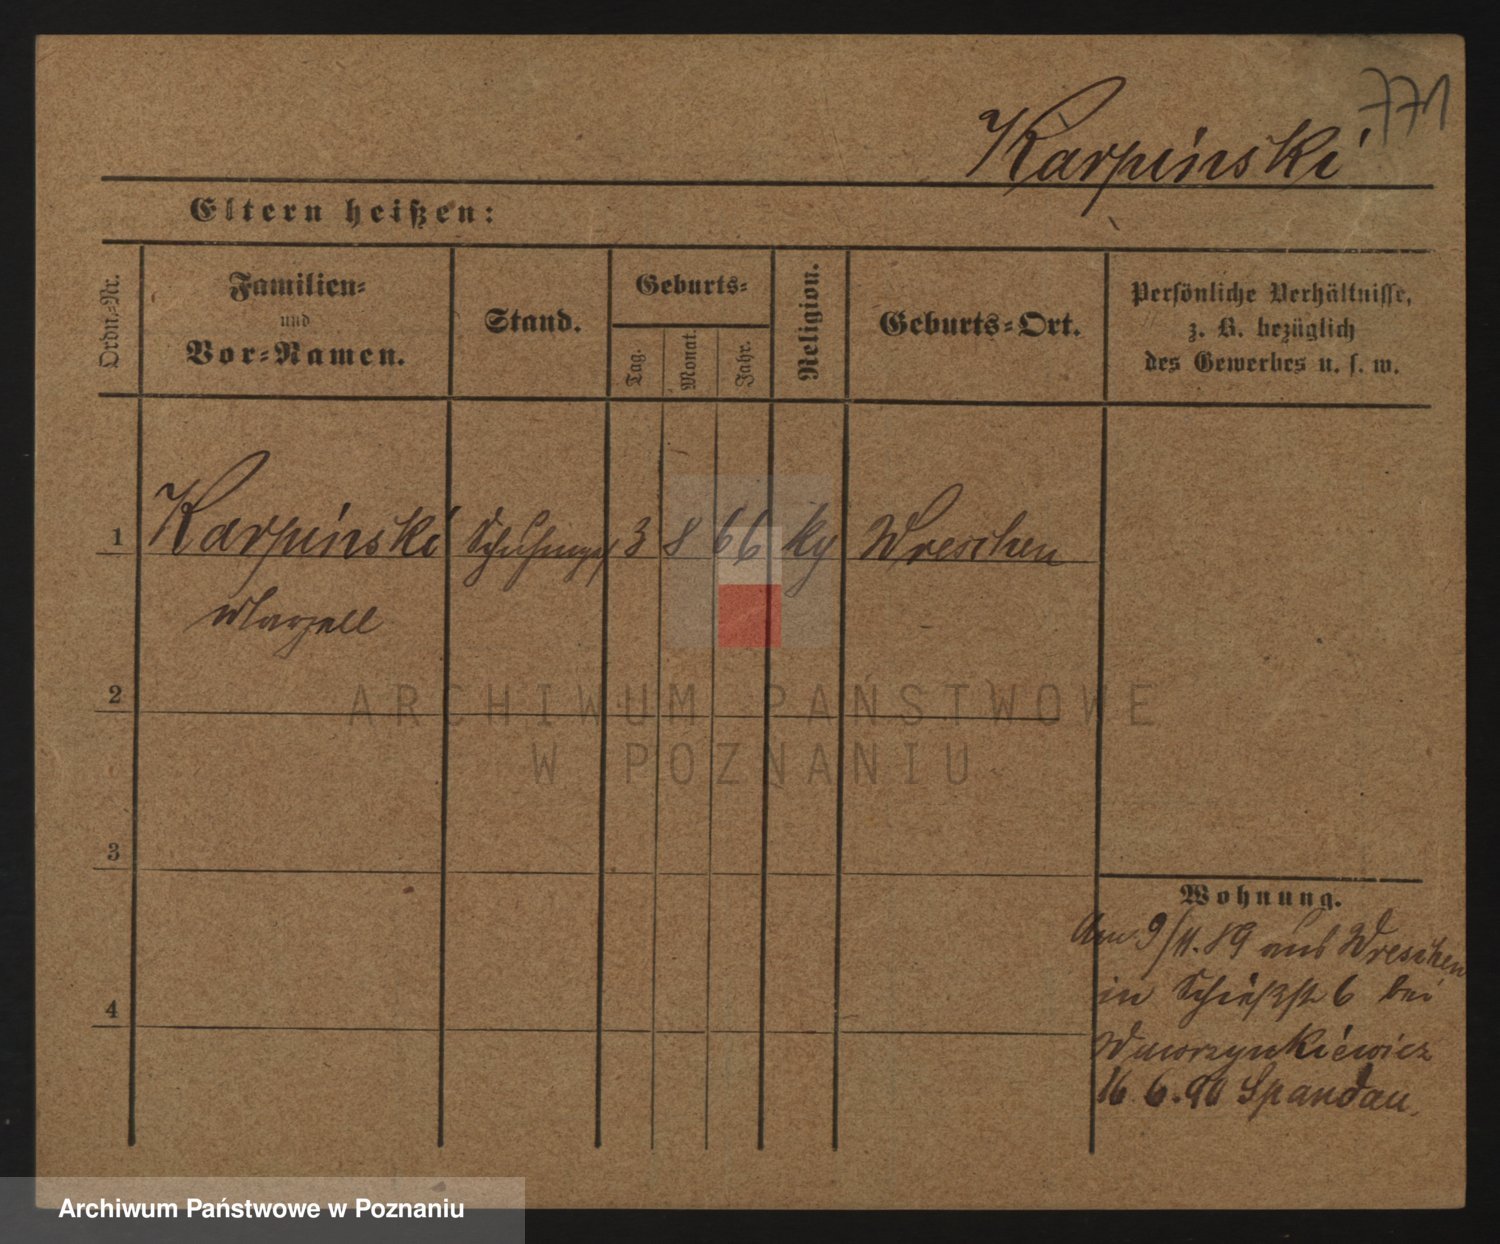 771
Karpinski
Eltern heißen:
Ordn.-Nr.
Familien-
und
Vor-Namen.
Stand.
Geburts-
Tag.
Monat.
Jahr.
Religion.
Geburts-Ort.
Persönliche Verhältnisse,
z. B. bezüglich
des Gewerbes u. s. w.
1 Karpinski 3 8 66 Wreschen
Marzell
2
ARCHIWUM PAŃSTWOWE
W POZNANIU
3
Wohnung.
Am 9/11.89 aus Wreschen
in Schießstr 6 bei
Wawrzynkiewicz
16 6.90 Spandau.
4
Archiwum Państwowe w Poznaniu